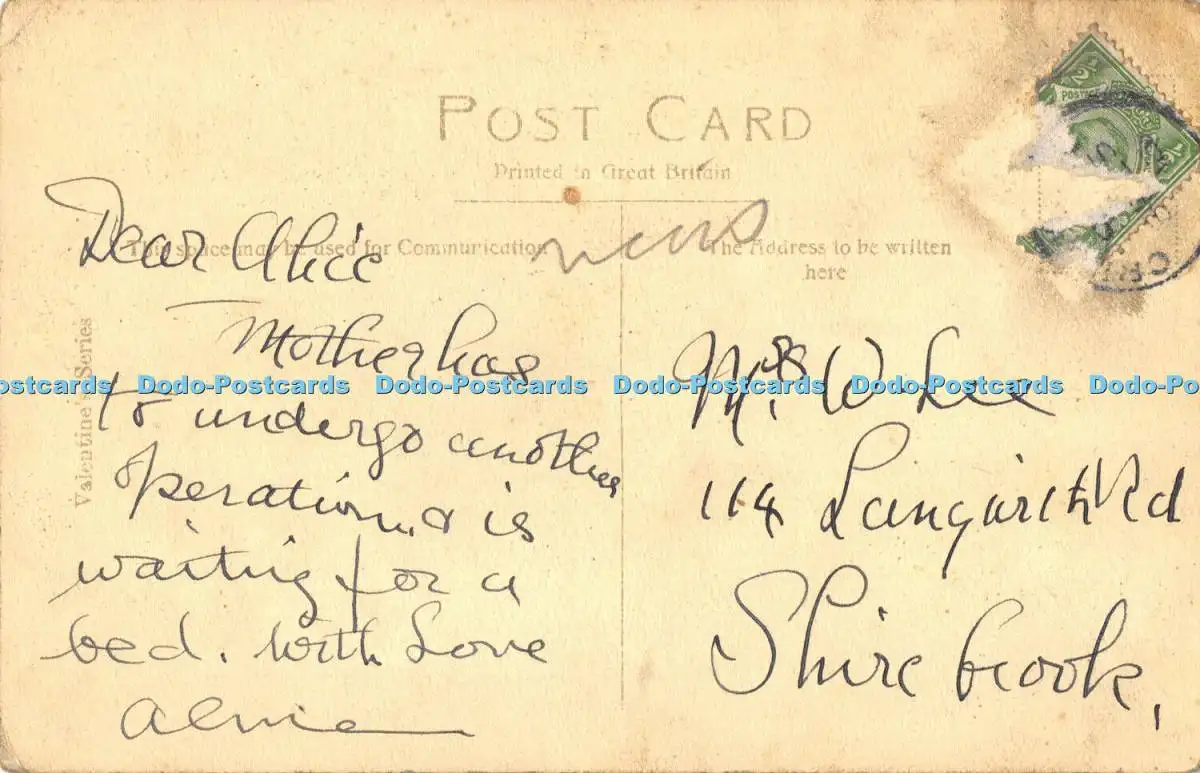 POST CARD
Printed in Great Britain
This space may be used for Communication
The Address to be written
here
Valentine's Series
Dear Alice
Mother has
to undergo another
operation & is
waiting for a
bed. With Love
Mrs W Lee
114 Rd
Shirebrook,
½
½
POSTAGE
Dodo-Postcards Dodo-Postcards Dodo-Postcards Dodo-Postcards